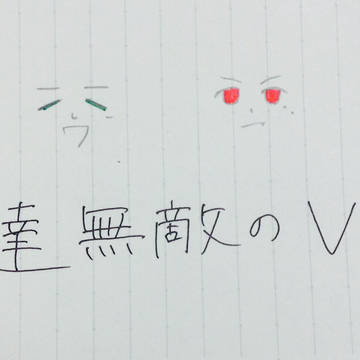 達無敵のV